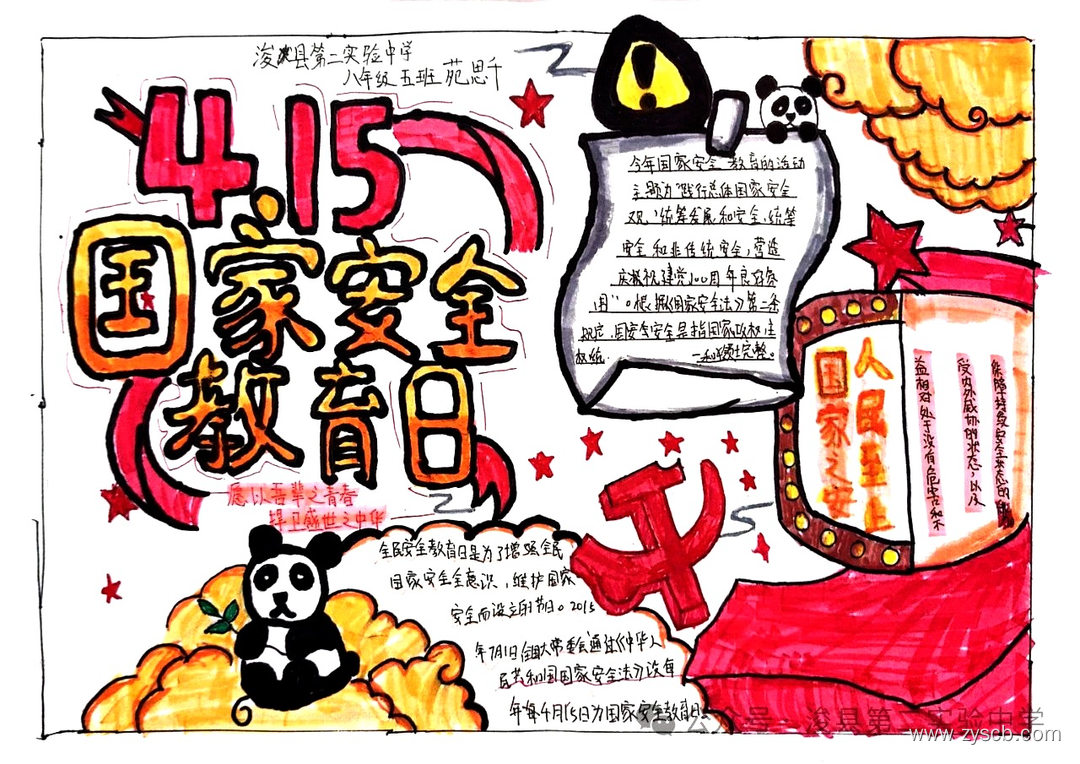 浚县第二实验中学
八年级 五班 苑思千
4.15
国家安全
教育日
愿以吾辈之青春
捍卫盛世之中华
今年国家安全 教育的活动
主题为"践行总体国家安全
观,统筹发展和安全,统筹
安全和非传统安全,营造
庆祝建党100周年良好氛
围"。根据《国家安全法》第二条
规定,国家安全是指国家政权,主
权统一和领土完整。
人民至上
国家之安
保障持续安全状态的
受内外威胁的状态,以及
益相对处于没有危害和不
全民安全教育日是为了增强全民
国家安全意识,维护国家
安全而设立的节日。2015
年7月1日全国人大常委会通过《中华人
民共和国国家安全法》设每
年每4月15日为国家安全教育日
公众号·浚县第二实验中学
www.zyscb.com